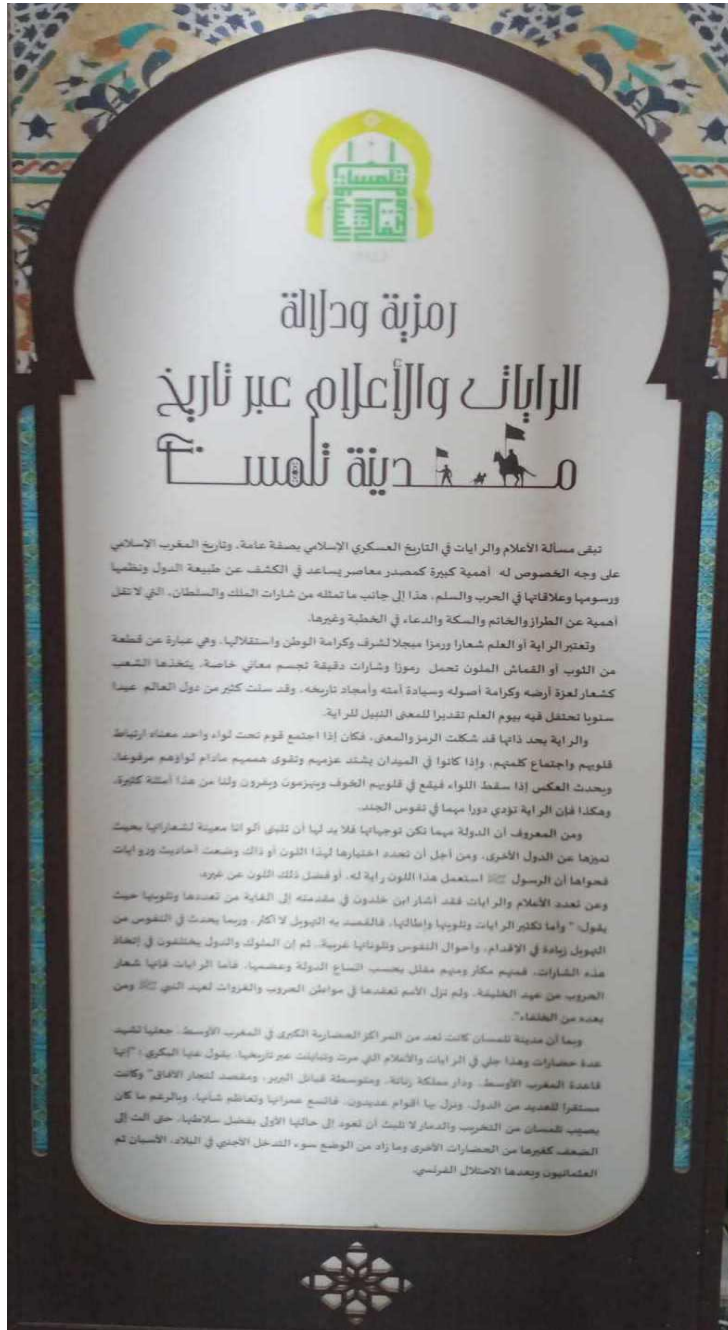 رمزية ودلالة
الرايات والأعلام عبر تاريخ
مدينة تلمسان
تبقى مسألة الأعلام والرايات في التاريخ العسكري الإسلامي بصفة عامة، وتاريخ المغرب الإسلامي
على وجه الخصوص له أهمية كبيرة كمصدر معاصر يساعد في الكشف عن طبيعة الدول ونظمها
ورسومها وعلاقاتها في الحرب والسلم، هذا إلى جانب ما تمثله من شارات الملك والسلطان، التي لا تقل
أهمية عن الطراز والخاتم والسكة والدعاء في الخطبة وغيرها.
وتعتبر الراية أو العلم شعارا ورمزا مبجلا لشرف وكرامة الوطن واستقلالها، وهي عبارة عن قطعة
من الثوب أو القماش الملون تحمل رموزا وشارات دقيقة تجسم معاني خاصة، يتخذها الشعب
كشعار لعزة أرضه وكرامة أصوله وسيادة أمته وأمجاد تاريخه، وقد سنت كثير من دول العالم عيدا
سنويا تحتفل فيه بيوم العلم تقديرا للمعنى النبيل للراية.
والراية بحد ذاتها قد شكلت الرمز والمعنى، فكان إذا اجتمع قوم تحت لواء واحد معناه ارتباط
قلوبهم واجتماع كلمتهم، وإذا كانوا في الميدان يشتد عزمهم وتقوى هممهم مادام لواؤهم مرفوعا،
ويحدث العكس إذا سقط اللواء فيقع في قلوبهم الخوف وينهزمون ويفرون ولنا من هذا أمثلة كثيرة،
وهكذا فإن الراية تؤدي دورا مهما في نفوس الجند.
ومن المعروف أن الدولة مهما تكن توجهاتها فلا بد لها أن تتبنى ألوانا معينة لشعاراتها بحيث
تميزها عن الدول الأخرى، ومن أجل أن تحدد اختيارها لهذا اللون أو ذاك وضعت أحاديث وروايات
فحواها أن الرسول ﷺ استعمل هذا اللون راية له، أو فضل ذلك اللون عن غيره.
وعن تعدد الأعلام والرايات فقد أشار ابن خلدون في مقدمته إلى الغاية من تعددها وتلوينها حيث
يقول: " وأما تكثير الرايات وتلوينها وإطالتها، فالقصد به التهويل لا أكثر، وربما يحدث في النفوس من
التهويل زيادة في الإقدام، وأحوال النفوس وتلوناتها غريبة. ثم إن الملوك والدول يختلفون في إتخاذ
هذه الشارات، فمنهم مكثر ومنهم مقلل بحسب اتساع الدولة وعضمها، فأما الرايات فإنها شعار
الحروب من عهد الخليقة، ولم تزل الأمم تعقدها في مواطن الحروب والغزوات لعهد النبي ﷺ ومن
بعده من الخلفاء".
وبما أن مدينة تلمسان كانت تعد من المراكز الحضارية الكبرى في المغرب الأوسط، جعلها تشهد
عدة حضارات وهذا جلي في الرايات والأعلام التي مرت وتباينت عبر تاريخها، يقول عنها البكري : "إنها
قاعدة المغرب الأوسط، ودار مملكة زناتة، ومتوسطة قبائل البربر، ومقصد لتجار الآفاق" وكانت
مستقرا للعديد من الدول، ونزل بها أقوام عديدون، فاتسع عمرانها وتعاظم شأنها، وبالرغم ما كان
يصيب تلمسان من التخريب والدمار لا تلبث أن تعود إلى حالتها الأولى بفضل سلاطنها، حتى آلت إلى
الضعف كغيرها من الحضارات الأخرى وما زاد من الوضع سوء التدخل الأجنبي في البلاد، الأسبان ثم
العثمانيون وبعدها الاحتلال الفرنسي.